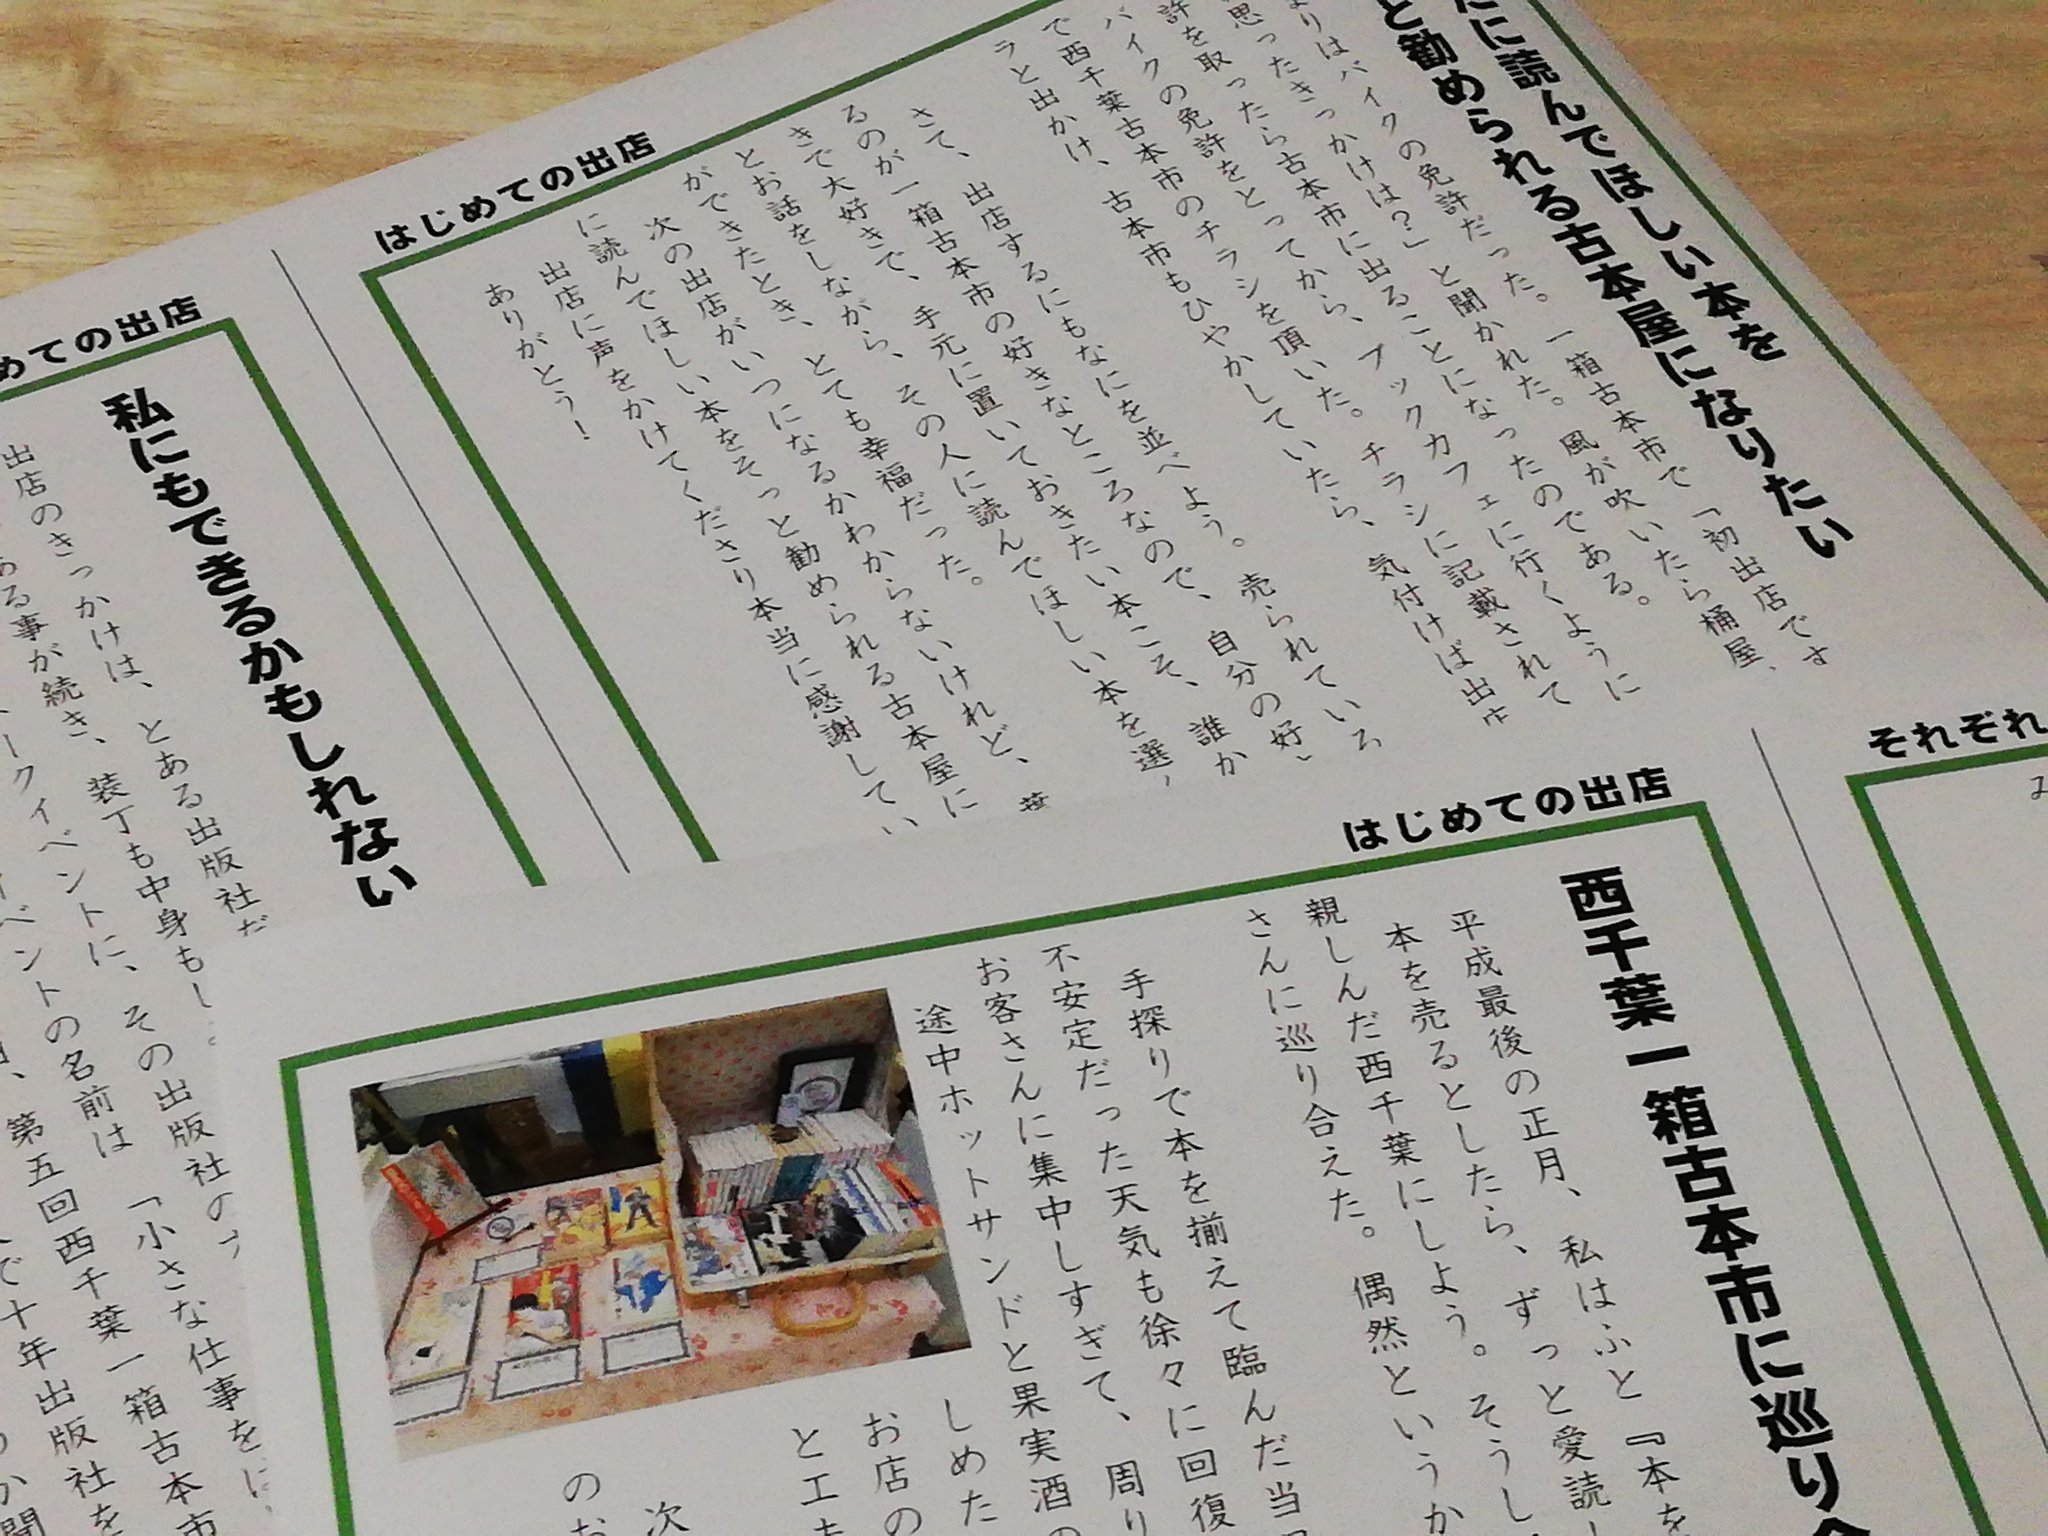 はじめての出店
に読んでほしい本を
と勧められる古本屋になりたい
りはバイクの免許だった。一箱古本市で「初出店です
思ったきっかけは?」と聞かれた。風が吹いたら桶屋、
許を取ったら古本市に出ることになったのである。
バイクの免許をとってから、ブックカフェに行くように
で西千葉古本市のチラシを頂いた。チラシに記載されて
ラと出かけ、古本市もひやかしていたら、気付けば出店
さて、出店するにもなにを並べよう。売られている
るのが一箱古本市の好きなところなので、自分の好
きで大好きで、手元に置いておきたい本こそ、誰か
とお話をしながら、その人に読んでほしい本を選
ができたとき、とても幸福だった。
次の出店がいつになるかわからないけれど、
に読んでほしい本をそっと勧められる古本屋に
出店に声をかけてくださり本当に感謝してい
ありがとう!
めての出店
私にもできるかもしれない
出店のきっかけは、とある出版社
ある事が続き、装丁も中身も
ークイベントに、その出版社の
イベントの名前は「小さな仕事を
、第五回西千葉一箱古本市
で十年出版社を
はじめての出店
西千葉一箱古本市に巡り
平成最後の正月、私はふと『本を
本を売るとしたら、ずっと愛読
親しんだ西千葉にしよう。そうし
さんに巡り合えた。偶然というか
手探りで本を揃えて臨んだ当
不安定だった天気も徐々に回復
お客さんに集中しすぎて、周り
途中ホットサンドと果実酒の
しめた
お店の
とエ
次
のお
それぞれ